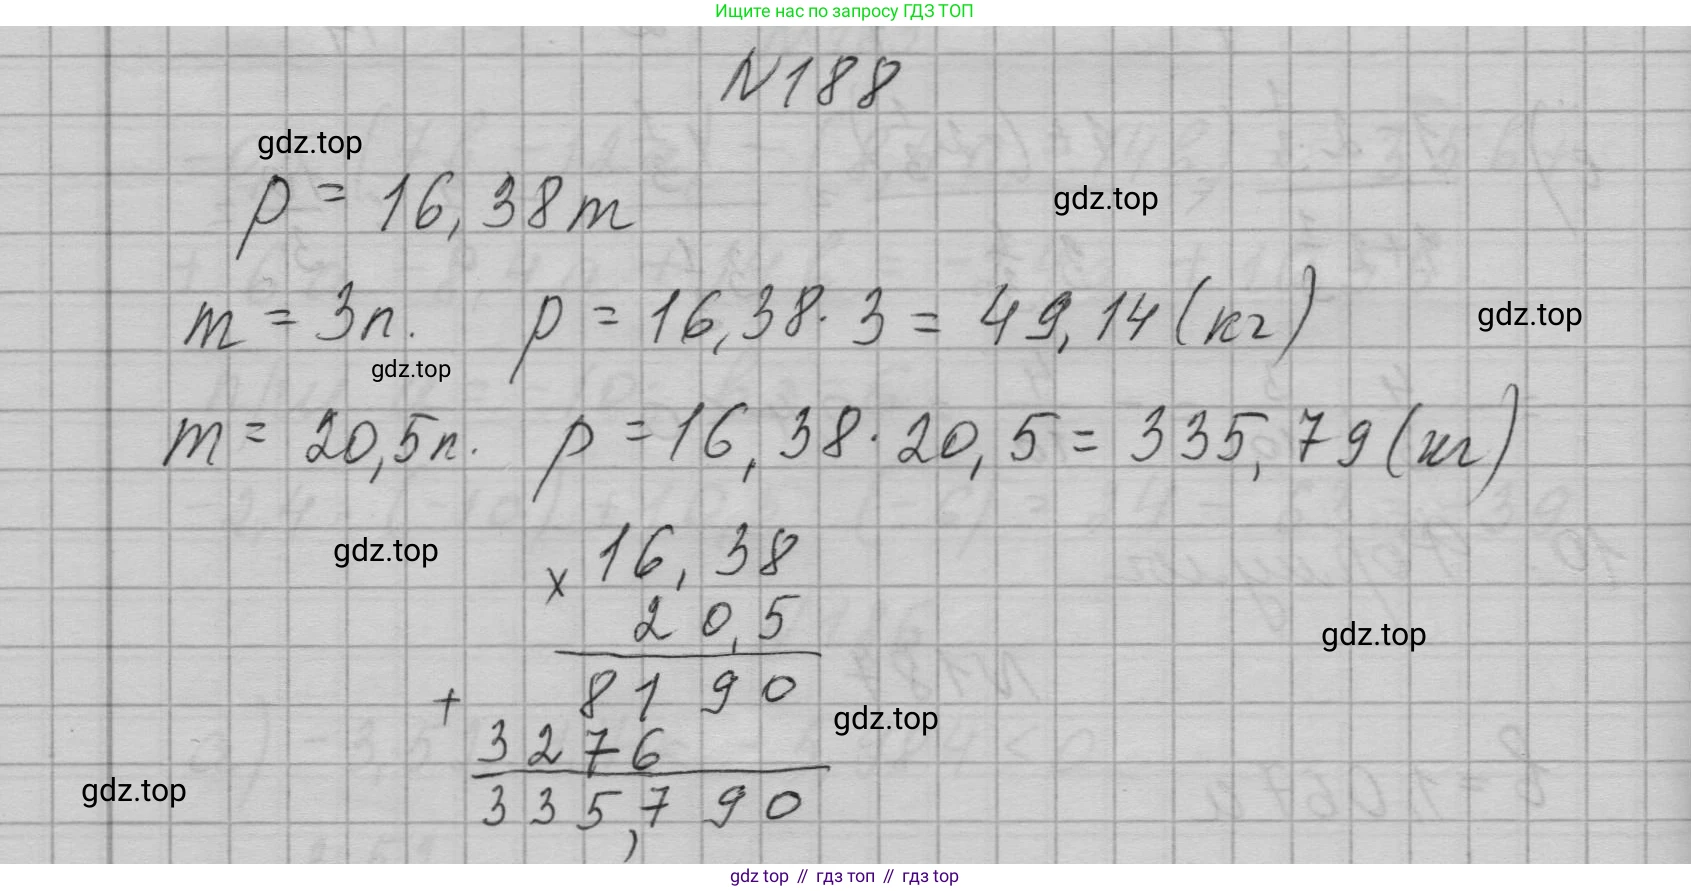 Ищите нас по запросу ГДЗ ТОП
N188
gdz.top
p = 16,38m
gdz.top
m = 3п. p = 16,38 · 3 = 49,14 (кг)
gdz.top
gdz.top
m = 20,5п. p = 16,38 · 20,5 = 335,79 (кг)
gdz.top
x 16,38
20,5
gdz.top
+ 8190
gdz.top
3276
gdz.top
335,790
gdz top // гдз топ // гдз top